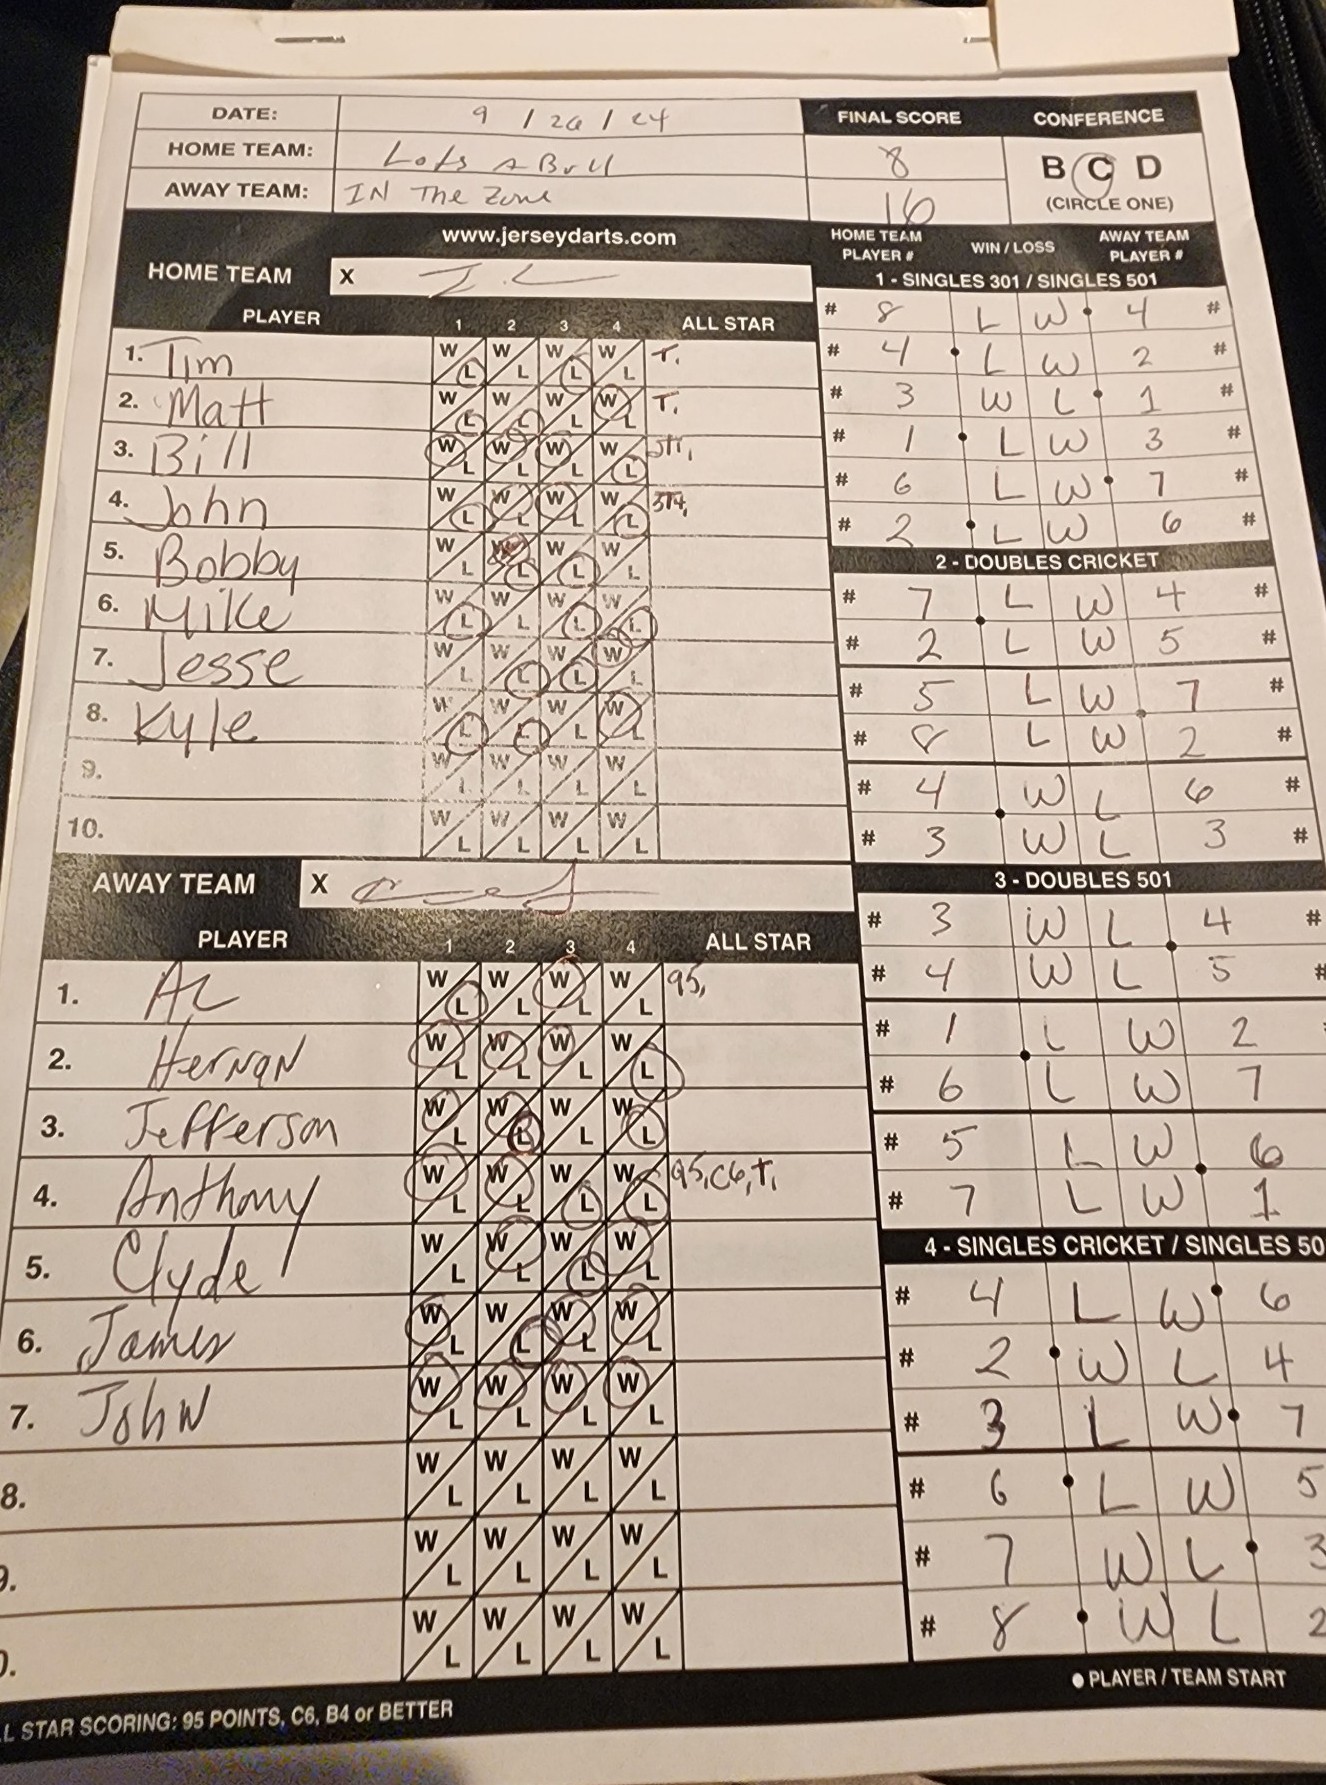 DATE: 9 / 26 / 24
HOME TEAM: Lots A Bull
AWAY TEAM: IN The Zone
FINAL SCORE
8
16
CONFERENCE
B C D
(CIRCLE ONE)
www.jerseydarts.com
HOME TEAM X
PLAYER 1 2 3 4 ALL STAR
1. Tim W L W L W L W L T.
2. Matt W L W L W L W L T.
3. Bill W L W L W L W L
4. John W L W L W L W L
5. Bobby W L W L W L W L
6. Mike W L W L W L W L
7. Jesse W L W L W L W L
8. Kyle W L W L W L W L
9. W L W L W L W L
10. W L W L W L W L
AWAY TEAM X
PLAYER 1 2 3 4 ALL STAR
1. AL W L W L W L W L 95,
2. HerNaN W L W L W L W L
3. Jefferson W L W L W L W L
4. Anthony W L W L W L W L 95, C6, T,
5. Clyde W L W L W L W L
6. James W L W L W L W L
7. JohN W L W L W L W L
8. W L W L W L W L
9. W L W L W L W L
0. W L W L W L W L
L STAR SCORING: 95 POINTS, C6, B4 or BETTER
HOME TEAM PLAYER # WIN / LOSS AWAY TEAM PLAYER #
1 - SINGLES 301 / SINGLES 501
# 8 L W 4 #
# 4 L W 2 #
# 3 W L 1 #
# 1 L W 3 #
# 6 L W 7 #
# 2 L W 6 #
2 - DOUBLES CRICKET
# 7 L W 4 #
# 2 L W 5 #
# 5 L W 7 #
# 8 L W 2 #
# 4 W L 6 #
# 3 W L 3 #
3 - DOUBLES 501
# 3 W L 4 #
# 4 W L 5 #
# 1 L W 2
# 6 L W 7
# 5 L W 6
# 7 L W 1
4 - SINGLES CRICKET / SINGLES 50
# 4 L W 6
# 2 W L 4
# 3 L W 7
# 6 L W 5
# 7 W L 3
# 8 W L 2
● PLAYER / TEAM START